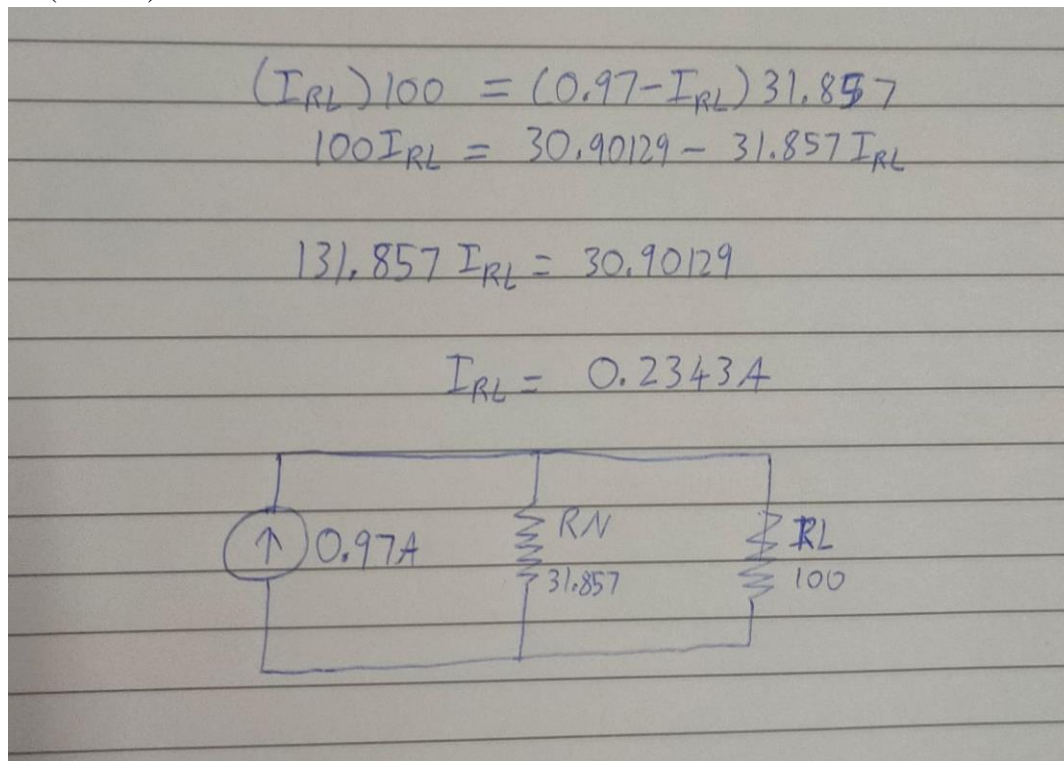 (I_RL)100 = (0.97-I_RL)31.857
100I_RL = 30.90129 - 31.857I_RL
131.857 I_RL = 30.90129
I_RL = 0.2343A
0.97A
RN
31.857
RL
100